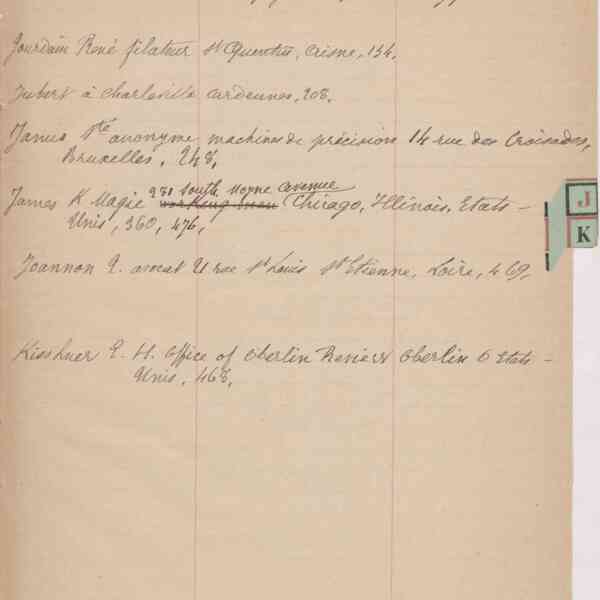 Jourdain René filateur St Quentin, Aisne, 134.
Jubert à Charleville Ardennes, 208.
Janus Ste anonyme machines de précision 14 rue des Croisades,
Bruxelles, 248,
981 South Hoyne Avenue
James K Magie Working Man Chicago, Illinois, Etats-
Unis, 360, 476,
Joannon A. avocat 11 rue St Louis St Etienne, Loire, 469,
E. H. Office of Oberlin Reviers Oberlin O Etats-
Unis, 468,
J
K